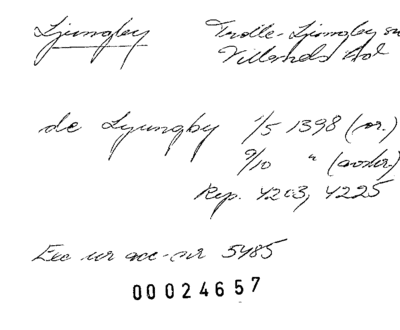 Ljungby Trolle-Ljungby sn
Villands hd
de Lyungby 1/5 1398 (or.)
9/10 " (avskr.)
Rep. 4203, 4225
Exc ur acc-nr 5485
00024657